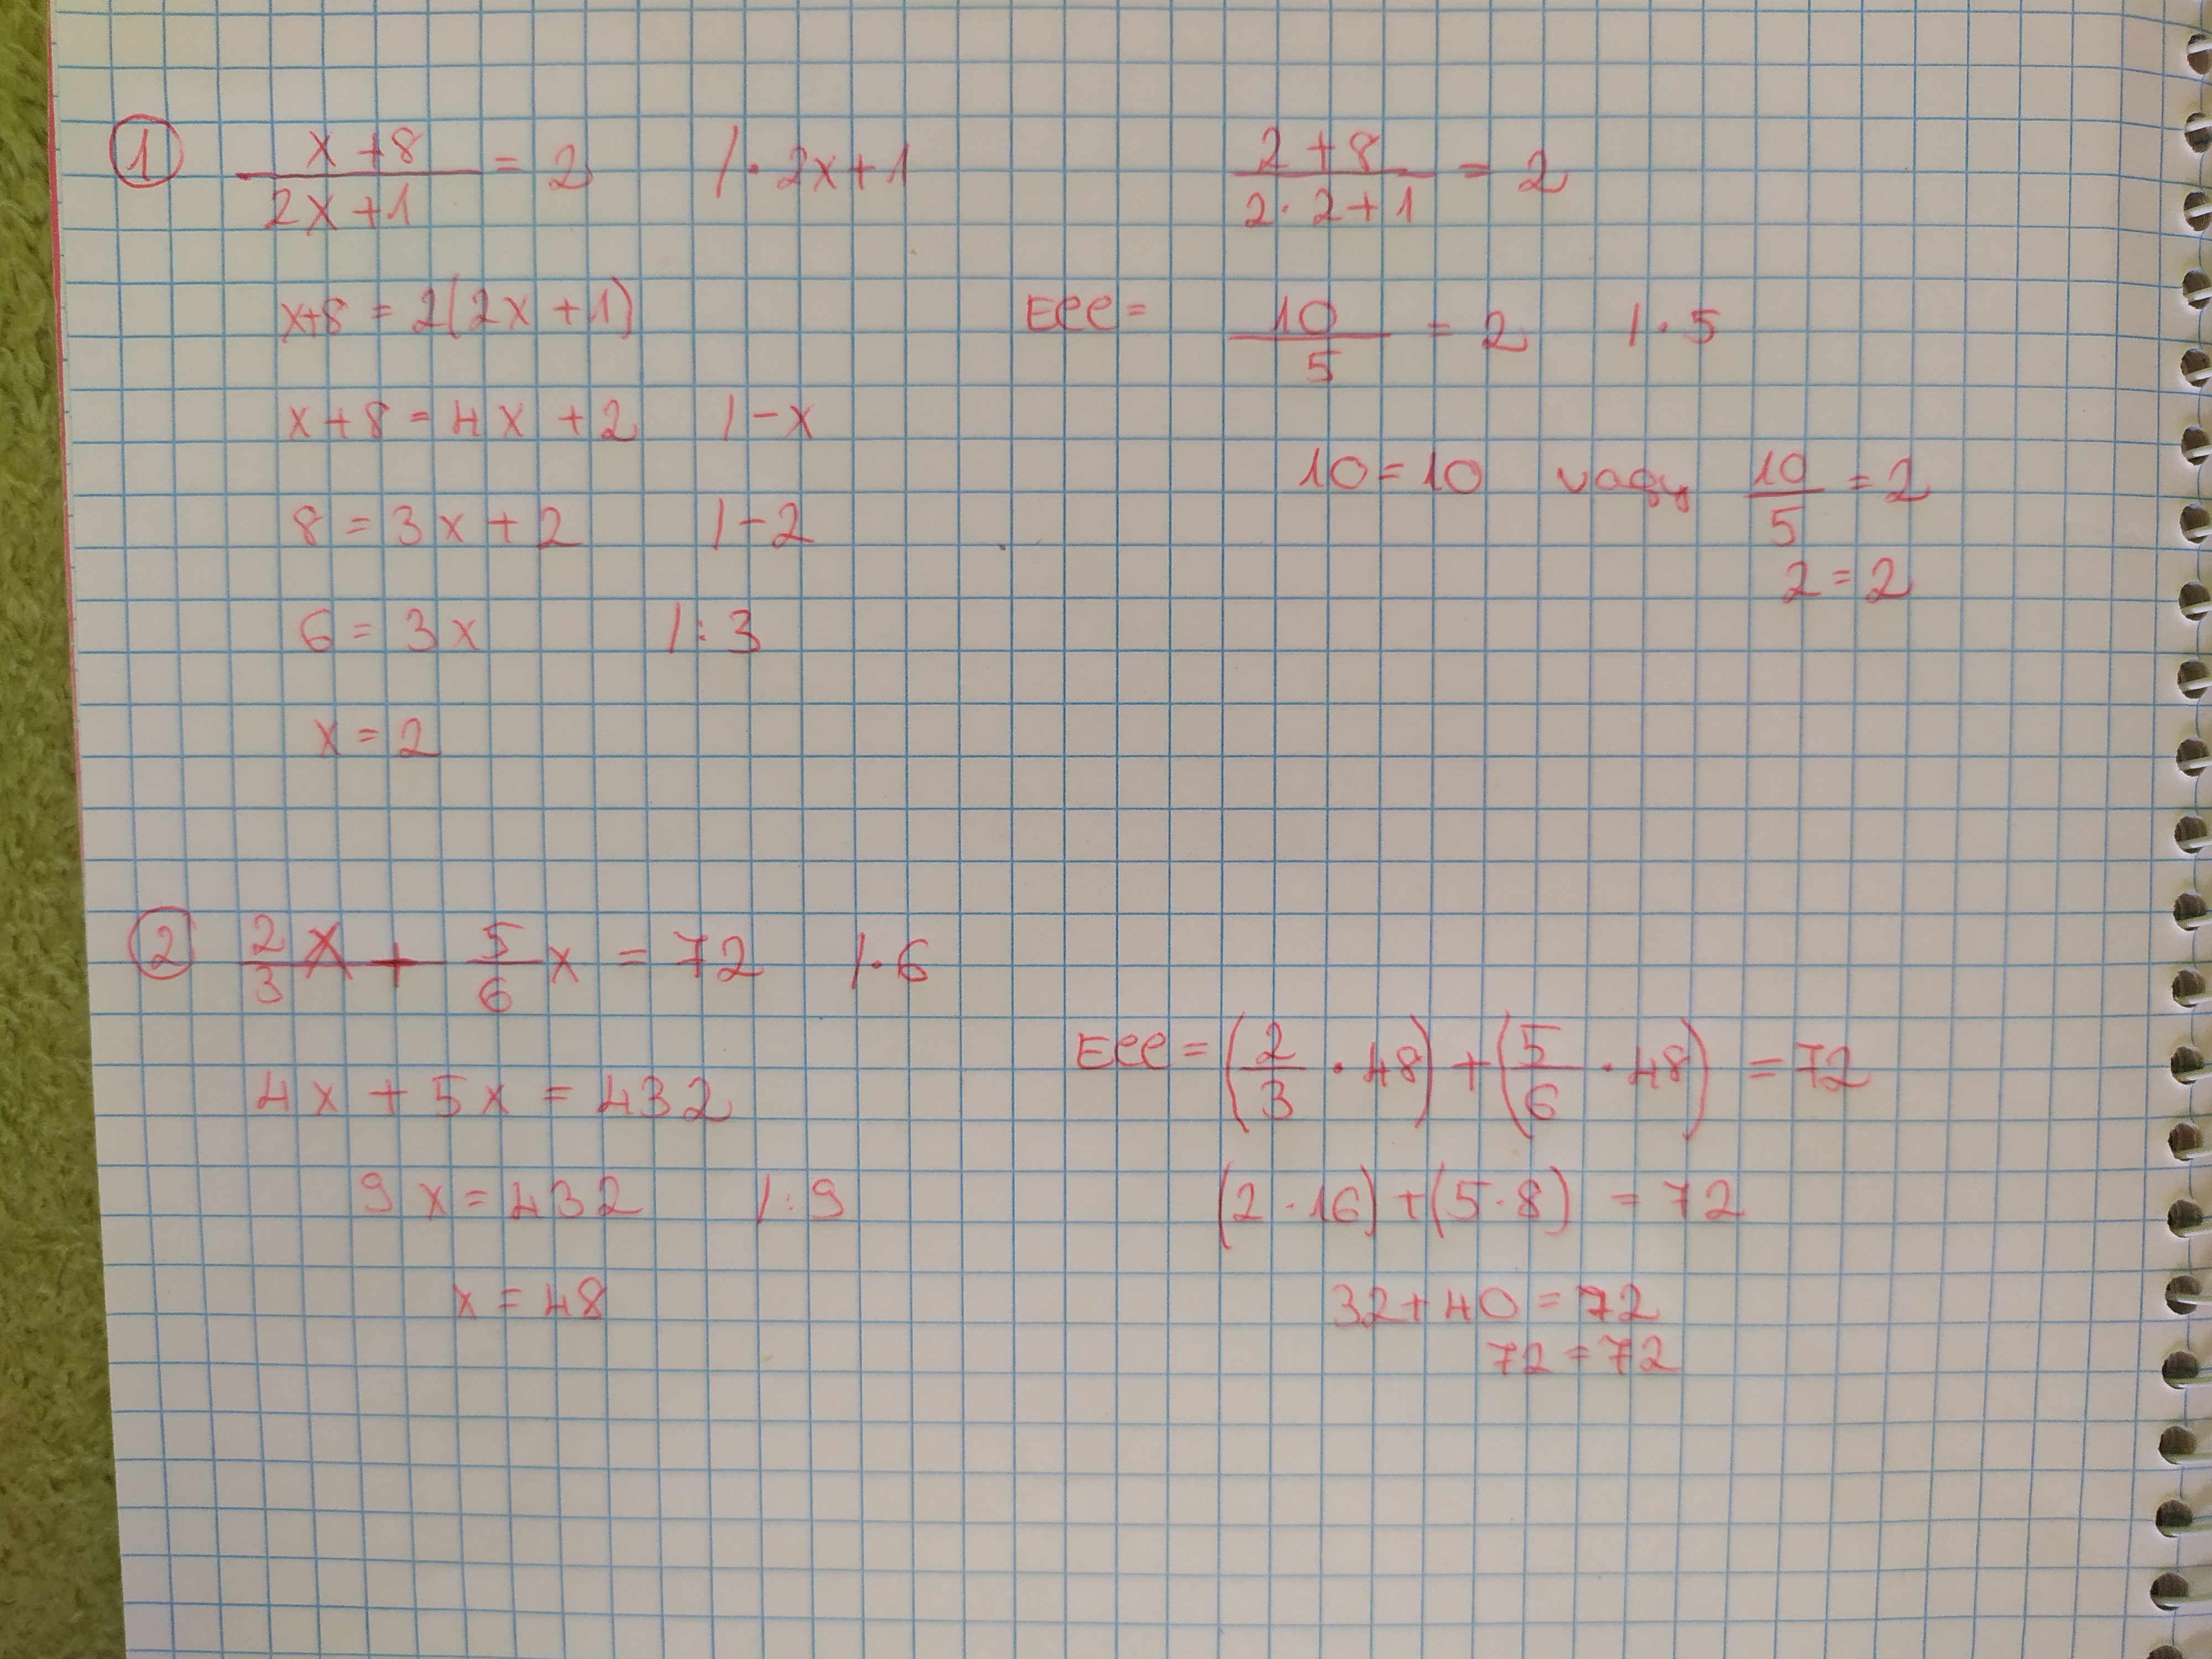 ① (x+8)/(2x+1) = 2 /· 2x+1
x+8 = 2(2x+1)
x+8 = 4x+2 /-x
8 = 3x+2 /-2
6 = 3x /:3
x = 2
(2+8)/(2·2+1) = 2
Ell = 10/5 = 2 /·5
10=10 vagy 10/5 = 2
2=2
② 2/3 x + 5/6 x = 72 /·6
4x + 5x = 432
9x = 432 /:9
x = 48
Ell = (2/3 · 48) + (5/6 · 48) = 72
(2·16)+(5·8) = 72
32+40 = 72
72 = 72